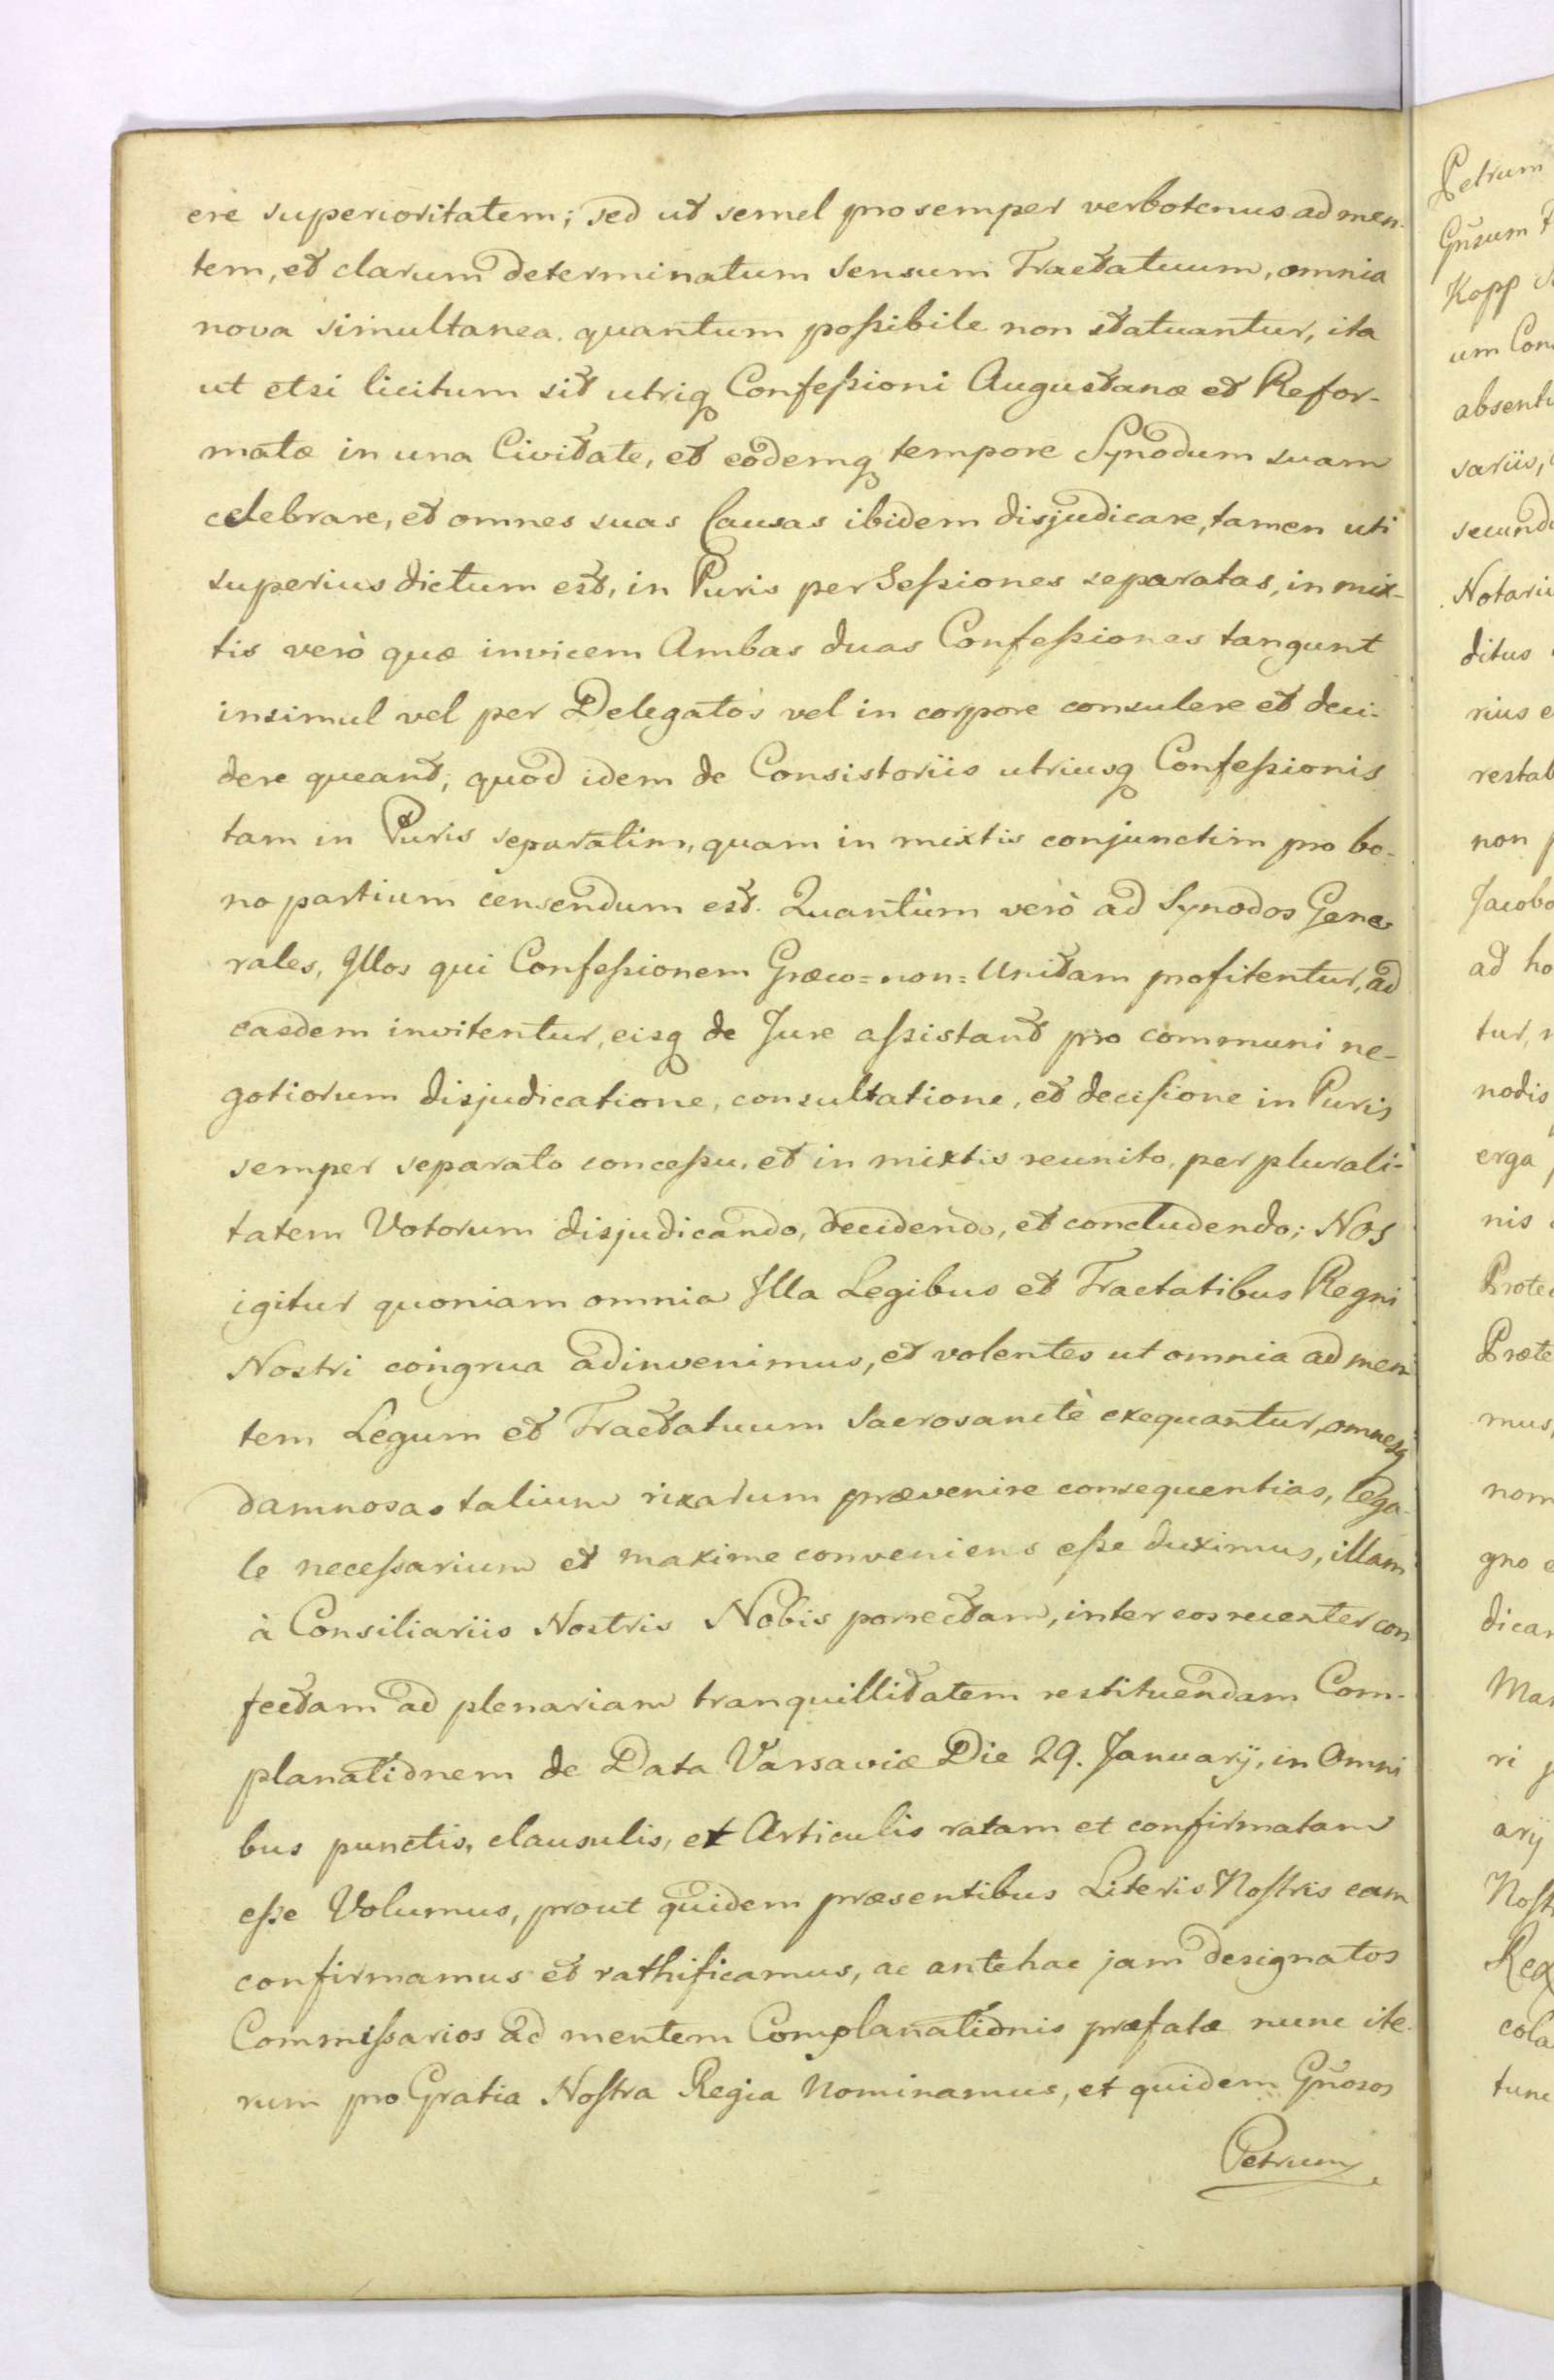 ere superioritatem; sed ut semel pro semper verbotenus ad men-
tem, et clarum determinatum sensum Tractatuum, omnia
nova simultanea quantum possibile non statuantur, ita
ut etsi licitum sit utriq Confessioni Augustanæ et Refor-
matæ in una Civitate, et eodemq tempore Synodum suam
celebrare, et omnes suas Causas ibidem disjudicare, tamen uti
superius dictum est, in Puris per Sessiones separatas, in mix-
tis verò quæ invicem Ambas duas Confessiones tangunt
insimul vel per Delegatos vel in corpore consulere et deci-
dere queant; quod idem de Consistoriis utriusq Confessionis
tam in Puris separatim, quam in mixtis conjunctim pro bo-
no partium censendum est. Quantùm verò ad Synodos Gene
rales, Illos qui Confessionem Græco=non=Unitam profitentur, ad
easdem invitentur, eisq de Jure assistant pro communi ne-
gotiorum disjudicatione, consultatione, et decisione in Puris
semper separato concessu, et in mixtis reunito, per plurali-
tatem Votorum disjudicando, decidendo, et concludendo; Nos
igitur quoniam omnia Illa Legibus et Tractatibus Regni
Nostri congrua adinvenimus, et volentes ut omnia ad men
tem Legum et Tractatuum Sacrosanctè exequantur, omnesq
damnosas talium rixarum prævenire consequentias, lega-
le necessarium et maxime conveniens esse duximus, illam
à Consiliariis Nostris Nobis porrectam, inter eos recenter con
fectam ad plenariam tranquillitatem restituendam Com-
planationem de Data Varsaviæ Die 29. Januarij, in Omni
bus punctis, clausulis, et Articulis ratam et confirmatam
esse Volumus, prout quidem præsentibus Literis Nostris eam
confirmamus et rathificamus, ac antehac jam designatos
Commissarios ad mentem Complanationis præfatæ nunc ite-
rum pro Gratia Nostra Regia Nominamus, et quidem Gñosos
Petrum
Petrum
Gñsum
Kopp
um Con
absent
sariis,
secund
Notari
ditus
rius e
restab
non p
Jacobo
ad ho
tur, n
nodis
erga
nis
Prote
Præte
mus,
nom
gno e
dicar
Mar
ri p
arij
Nost
Reg
cola
tunc